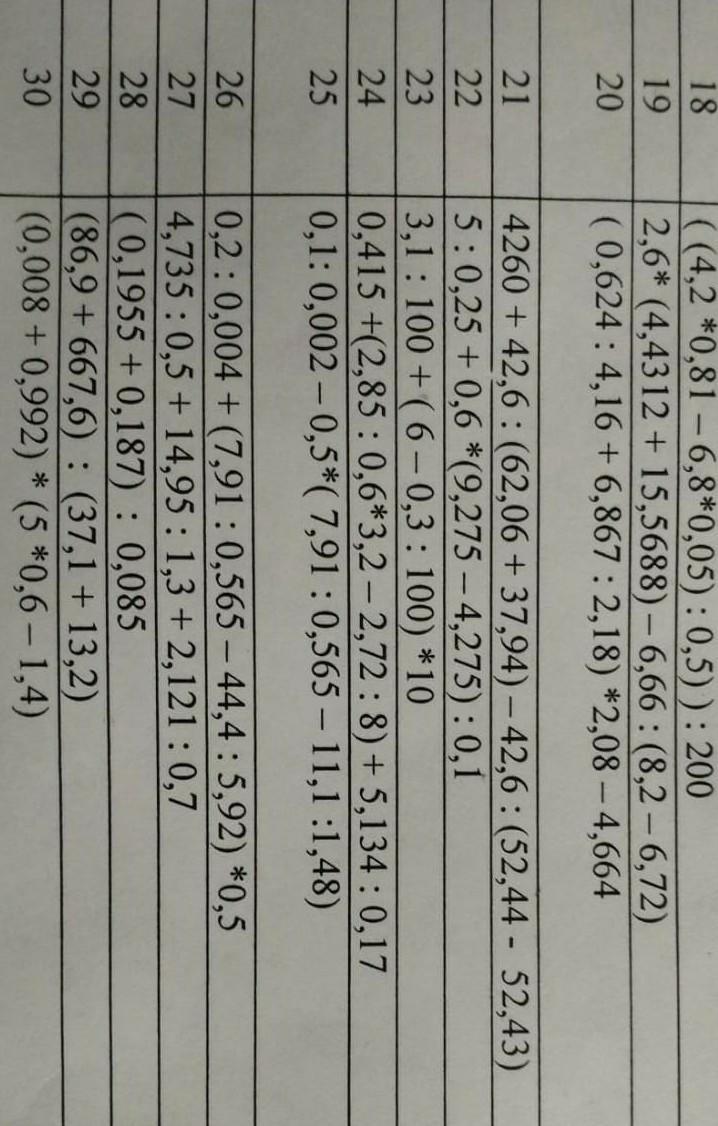 18 ( (4,2 *0,81 – 6,8*0,05) : 0,5) ) : 200
19 2,6* (4,4312 + 15,5688) – 6,66 : (8,2 – 6,72)
20 ( 0,624 : 4,16 + 6,867 : 2,18) *2,08 – 4,664
21 4260 + 42,6 : (62,06 + 37,94) – 42,6 : (52,44 - 52,43)
22 5 : 0,25 + 0,6 *(9,275 – 4,275) : 0,1
23 3,1 : 100 + ( 6 – 0,3 : 100) *10
24 0,415 +(2,85 : 0,6*3,2 – 2,72 : 8) + 5,134 : 0,17
25 0,1: 0,002 – 0,5*( 7,91 : 0,565 – 11,1 :1,48)
26 0,2 : 0,004 + (7,91 : 0,565 – 44,4 : 5,92) *0,5
27 4,735 : 0,5 + 14,95 : 1,3 + 2,121 : 0,7
28 ( 0,1955 + 0,187) : 0,085
29 (86,9 + 667,6) : (37,1 + 13,2)
30 (0,008 + 0,992) * (5 *0,6 – 1,4)